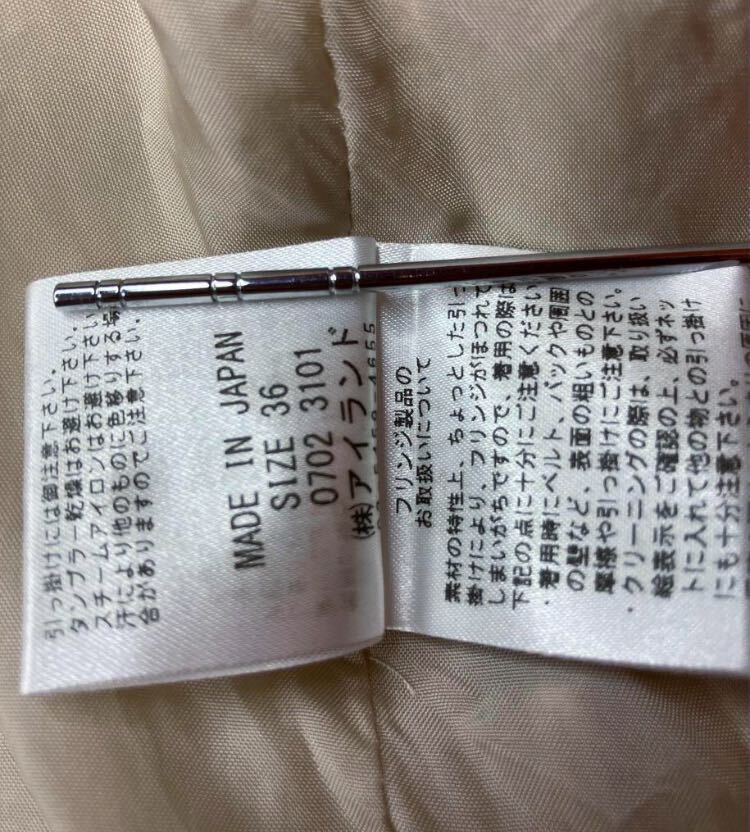 引っ掛けには御注意下さい。
タンブラー乾燥はお避け下さい。
スチームアイロンはお避け下さい
汗により他のものに色移りする場
合がありますのでご注意下さい。
MADE IN JAPAN
SIZE 36
0702 3101
(株)アイランド
4655
フリンジ製品の
お取扱いについて
素材の特性上、ちょっとした引
掛けにより、フリンジがほつれて
しまいがちですので、着用の際は
下記の点に十分にご注意ください
・着用時にベルト、バックや周囲
の壁など、表面の粗いものとの
摩擦や引っ掛けにご注意下さい。
・クリーニングの際は、取り扱い
絵表示をご確認の上、必ずネッ
トに入れて他の物との引っ掛け
にも十分注意下さい。